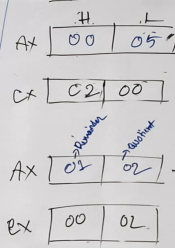 H L
AX 00 05
CX 02 00
Remainder Quotient
AX 01 02
BX 00 02